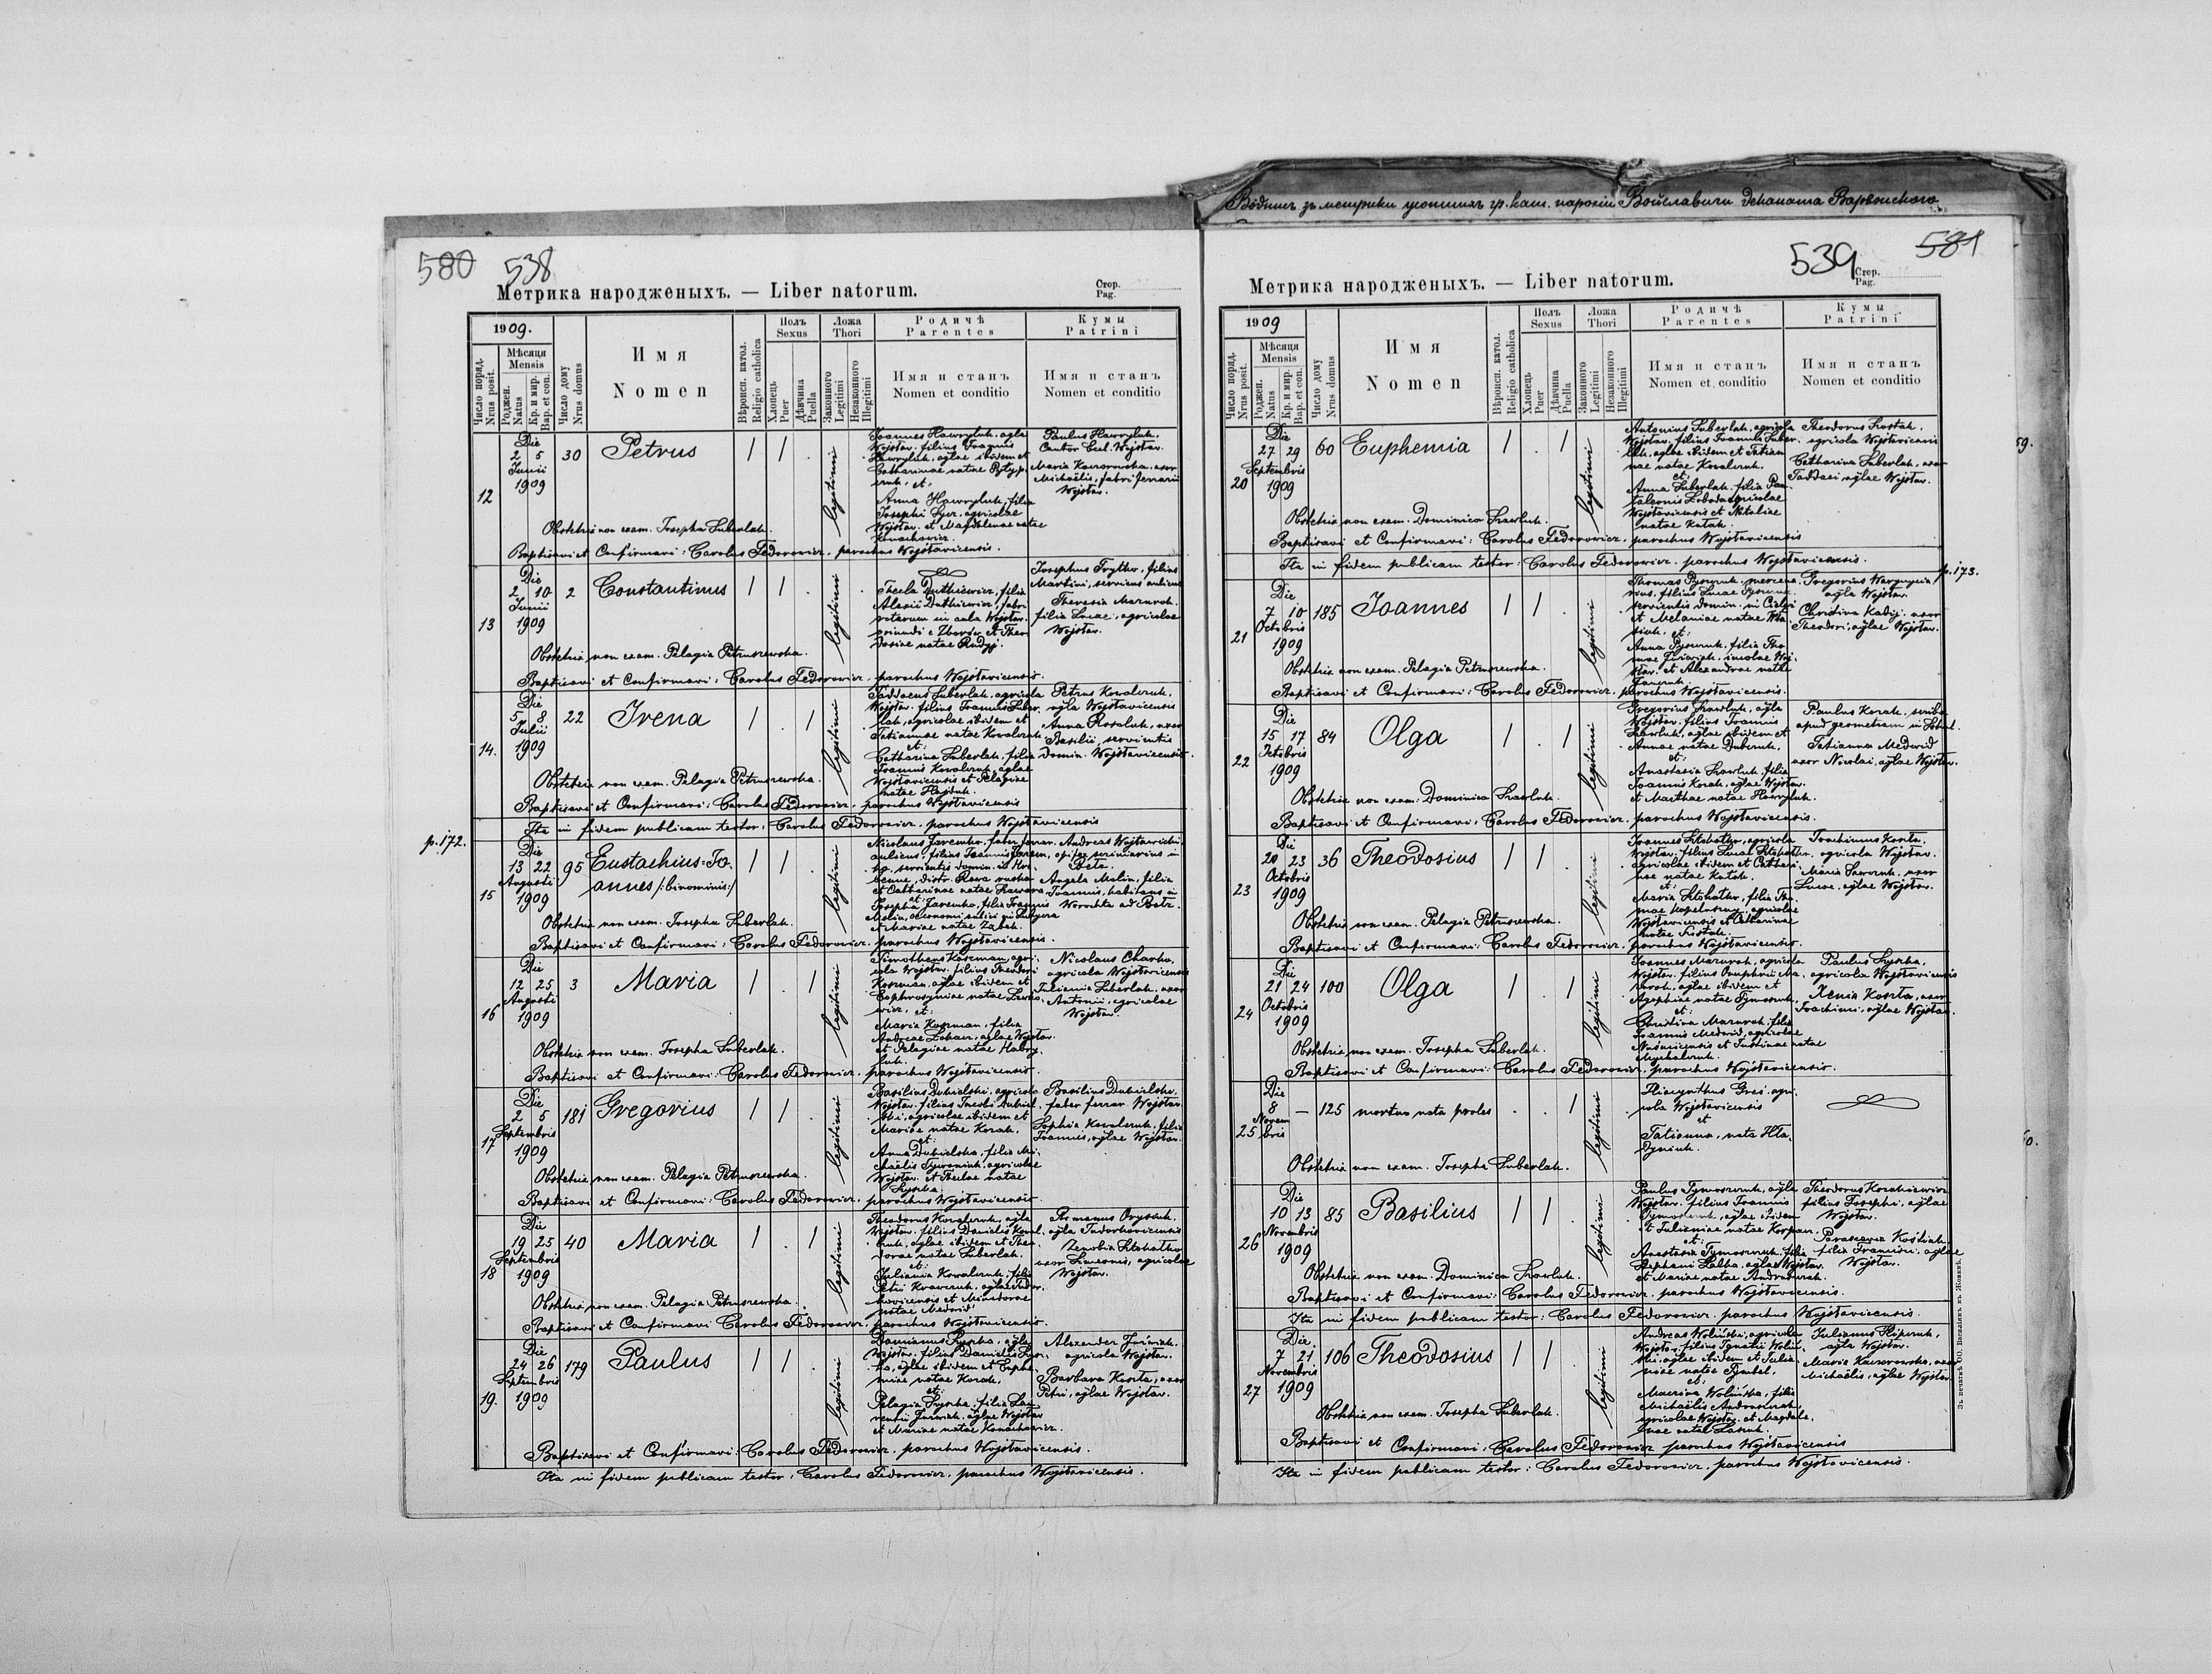 Водпись зъ метрики усопшихъ гр. кат. парохіи Войславичи деканата Варяжского
580 538
Метрика народженыхъ. — Liber natorum.
Стор.
Pag.
1909.
Число поряд.
Nrus posit.
Мѣсяця
Mensis
Роджен.
Natus
Кр. и мир.
Bap. et con.
Число дому
Nrus domus
Имя
Nomen
Вѣроисп. катол.
Religio catholica
Полъ
Sexus
Хлопець
Puer
Дѣвчина
Puella
Ложа
Thori
Законного
Legitimi
Незаконного
Illegitimi
Родичѣ
Parentes
Имя и станъ
Nomen et conditio
Кумы
Patrini
Имя и станъ
Nomen et conditio
12
Die
2 5
Junii
1909
30
Petrus
legitimi
Joannes Hawryluk, agla
Wojsław. filius Joannis
Hawryluk, aglae ibidem et
Catharinae natae
et:
Anna Hawryluk, filia
Josephi agricolae
Wojsław. et Magdalenae natae
Paulus Hawryluk,
Cantor Eccl. Wojsław.
Maria uxor
Michaëlis, fabri ferrarii
Wojsław.
Obstetrix non exam. Josepha Suberlak.
Baptisavi et Confirmavi: Carolus Fedorowicz, parochus Wojsławicensis.
13
Die
2 10
Junii
1909
2
Constantinus
legitimi
Thecla Duthiewicz, filia
Alexii Duthiewicz, fabri
rotarum in aula Wojsław.
oriundi e et Theo-
dosiae natae Rudyj.
Josephus filius
Martini, serviens aulicus
Theresia Mazurok,
filia Lucae, agricolae
Wojsław.
Obstetrix non exam. Pelagia Petruszewska.
Baptisavi et Confirmavi: Carolus Fedorowicz, parochus Wojsławicensis.
14.
Die
5 8
Julii
1909
22
Irena
legitimi
Taddaeus Suberlak, agricola
Wojsław. filius Joannis Suber-
lak, agricolae ibidem et
Tatiannae natae Kowalczuk
et:
Catharina Suberlak, filia
Joannis Kowalczuk, aglae
Wojsławicensis et Pelagiae
natae Hajduk.
Petrus Kowalczuk,
agla Wojsławicensis
Anna uxor
Basilii, servientis
Domin. Wojsławicensis.
Obstetrix non exam. Pelagia Petruszewska.
Baptisavi et Confirmavi: Carolus Fedorowicz, parochus Wojsławicensis
Ita in fidem publicam testor: Carolus Fedorowicz, parochus Wojsławicensis
p. 172.
15
Die
13 22
Augusti
1909
95
Eustachius-Jo-
annes /:binominis:/
legitimi
Nicolaus Jaremko, faber ferrar.
aulicus, filius Joannis Jarem-
ko, servientis domin. in
distr. Rawa ruska
et Catharinae natae
et:
Josepha Jaremko, filia Joannis
Molin, oeconomi aulici in
et Mariae natae Zabek.
Andreas
opifex in
Bełz.
Angela Molin, filia
Joannis, habitans in
Worochta ad Bełz.
Obstetrix non exam. Josepha Suberlak.
Baptisavi et Confirmavi: Carolus Fedorowicz, parochus Wojsławicensis.
16
Die
12 25
Augusti
1909
3
Maria
legitimi
Timotheus Kaszman, agri-
cola Wojsław. filius Theodori
Kaszman, aglae ibidem et
Euphrosyniae natae
et:
Maria Kaszman, filia
Andreae aglae Wojsław.
et Pelagiae natae Hawry-
luk.
Nicolaus Charko,
agricola Wojsławicensis
Julianna Suberlak, uxor
Antonii, agricolae
Wojsław.
Obstetrix non exam. Josepha Suberlak.
Baptisavi et Confirmavi: Carolus Fedorowicz, parochus Wojsławicensis.
17
Die
2 5
Septembris
1909
181
Gregorius
legitimi
Basilius Dubielski, agricola
Wojsław. filius Dubiel-
ski, agricolae ibidem et
Mariae natae Kozak.
et:
Anna Dubielska, filia Mi-
chaëlis agricolae
Wojsław. et Theclae natae
Łyszka.
Basilius Dubielski,
faber ferrar. Wojsław.
Sophia Kowalczuk, filia
Joannis, aglae Wojsław.
Obstetrix non exam. Pelagia Petruszewska.
Baptisavi et Confirmavi: Carolus Fedorowicz, parochus Wojsławicensis.
18
Die
19 25
Septembris
1909
40
Maria
legitimi
Theodorus Kowalczuk, agla
Wojsław. filius Danielis Kowal-
czuk, aglae ibidem et Theo-
dorae natae Suberlak.
et:
Julianna Kowalczuk, filia
Petri aglae Tudor-
kowicensis et
natae Medwid
Romanus
agla Tudorkowicensis
Zenobia
uxor Simeonis, agricolae
Wojsław.
Obstetrix non exam. Pelagia Petruszewska.
Baptisavi et Confirmavi Carolus Fedorowicz, parochus Wojsławicensis.
19.
Die
24 26
Septembris
1909
179
Paulus
legitimi
Damianus Łyszka, agla
Wojsław. filius Danielis Łysz-
ka, aglae ibidem et Euphe-
miae natae Kozak.
et:
Pelagia Łyszka, filia Lau-
rentii aglae Wojsław.
et Mariae natae Konachowicz.
Alexander
agricola Wojsław.
Barbara Koszta, uxor
Petri, aglae Wojsław.
Baptisavi et Confirmavi: Carolus Fedorowicz, parochus Wojsławicensis.
Ita in fidem publicam testor: Carolus Fedorowicz, parochus Wojsławicensis.
539 581
Метрика народженыхъ. — Liber natorum.
Стор.
Pag.
1909
Число поряд.
Nrus posit.
Мѣсяця
Mensis
Роджен.
Natus
Кр. и мир.
Bap. et con.
Число дому
Nrus domus
Имя
Nomen
Вѣроисп. катол.
Religio catholica
Полъ
Sexus
Хлопець
Puer
Дѣвчина
Puella
Ложа
Thori
Законного
Legitimi
Незаконного
Illegitimi
Родичѣ
Parentes
Имя и станъ
Nomen et conditio
Кумы
Patrini
Имя и станъ
Nomen et conditio
20
Die
27 29
Septembris
1909
60
Euphemia
legitimi
Antonius Suberlak, agricola
Wojsław. filius Joannis Suber-
lak, aglae ibidem et Tatian-
nae natae Kowalczuk.
et:
Anna Suberlak, filia Pan-
taleonis agricolae
Wojsławicensis et Nataliae
natae Katah.
Theodorus
agricola Wojsławicensis
Catharina Suberlak, uxor
Taddaei, aglae Wojsław.
Obstetrix non exam. Dominica Szawluk.
Baptisavi et Confirmavi: Carolus Fedorowicz, parochus Wojsławicensis
Ita in fidem publicam testor: Carolus Fedorowicz, parochus Wojsławicensis.
p. 173.
21
Die
7 10
Octobris
1909
185
Joannes
legitimi
Thomas mercena-
rius, filius Lucae
servientis domin. in
et Melaniae natae
et:
Anna filia Tho-
mae incolae Woj-
sław. et Alexandrae natae
Gregorius
agla Wojsław.
Christina Kadij, uxor
Theodori, aglae Wojsław.
Obstetrix non exam. Pelagia Petruszewska.
Baptisavi et Confirmavi: Carolus Fedorowicz, parochus Wojsławicensis.
22
Die
15 17
Octobris
1909
84
Olga
legitimi
Gregorius Szawluk, agla
Wojsław. filius Joannis
Szawluk, aglae ibidem et
Annae natae
et:
Anastasia Szawluk, filia
Joannis Kozak, aglae Wojsław.
et Marthae natae Hawryluk.
Paulus Kozak, scriba
apud geometram in Sokal.
Tatianna Medwid
uxor Nicolai, aglae Wojsław.
Obstetrix non exam: Dominica Szawluk.
Baptisavi et Confirmavi: Carolus Fedorowicz, parochus Wojsławicensis.
23
Die
20 23
Octobris
1909
36
Theodosius
legitimi
Joannes agricola
Wojsław. filius Lucae
agricolae ibidem et Cathari-
nae natae Katah.
et:
Maria filia Tho-
mae agricolae
Wojsławicensis et Catharinae
natae
Joachimus Koszta,
agricola Wojsław.
Maria uxor
Lucae, aglae Wojsław.
Obstetrix non exam. Pelagia Petruszewska.
Baptisavi et Confirmavi: Carolus Fedorowicz, parochus Wojsławicensis.
24
Die
21 24
Octobris
1909
100
Olga
legitimi
Joannes Mazurok, agricola
Wojsław. filius Onuphrii Ma-
zurok, aglae ibidem et
Agaphiae natae Tymoszczuk,
et:
Christina Mazurok, filia
Joannis Medwid, agricolae
et Justinae natae
Mychalczuk.
Paulus Łyszka,
agricola Wojsławicensis
Xenia Koszta, uxor
Joachimi, aglae Wojsław.
Obstetrix non exam. Josepha Suberlak.
Baptisavi et Confirmavi: Carolus Fedorowicz, parochus Wojsławicensis.
25
Die
8 —
Novem
bris
125
mortuo nata proles
legitimi
Hiacynthus agri-
cola Wojsławicensis
et
Tatianna, nata Hła-
dyniuk.
Obstetrix non exam. Josepha Suberlak.
26
Die
10 13
Novembris
1909
85
Basilius
legitimi
Paulus Tymoszczuk, agla
Wojsław. filius Joannis
Tymoszczuk, aglae ibidem
et Julianiae natae
et:
Anastasia Tymoszczuk, filia
Stephani aglae Wojsław.
et Mariae natae
Theodorus
filius Josephi, aglae
Wojsław.
Parascevia Kostiuk,
filia Francisci, aglae
Wojsław.
Obstetrix non exam. Dominica Szawluk.
Baptisavi et Confirmavi: Carolus Fedorowicz, parochus Wojsławicensis.
Ita in fidem publicam testor: Carolus Fedorowicz, parochus Wojsławicensis.
27
Die
7 21
Novembris
1909
106
Theodosius
legitimi
Andreas Woliński, agricola
Wojsław. filius Ignatii Woliń-
ski, aglae ibidem et Julian-
nae natae
et:
Macrina Wolińska, filia
Michaëlis
agricolae Wojsław. et Magdale-
nae natae
Julianus
agla Wojsław.
Maria uxor
Michaëlis, aglae Wojsław.
Obstetrix non exam. Josepha Suberlak.
Baptisavi et Confirmavi: Carolus Fedorowicz parochus Wojsławicensis
Ita in fidem publicam testor: Carolus Fedorowicz, parochus Wojsławicensis.
Зъ печатнѣ ОО. Василіянъ въ Жовквѣ.